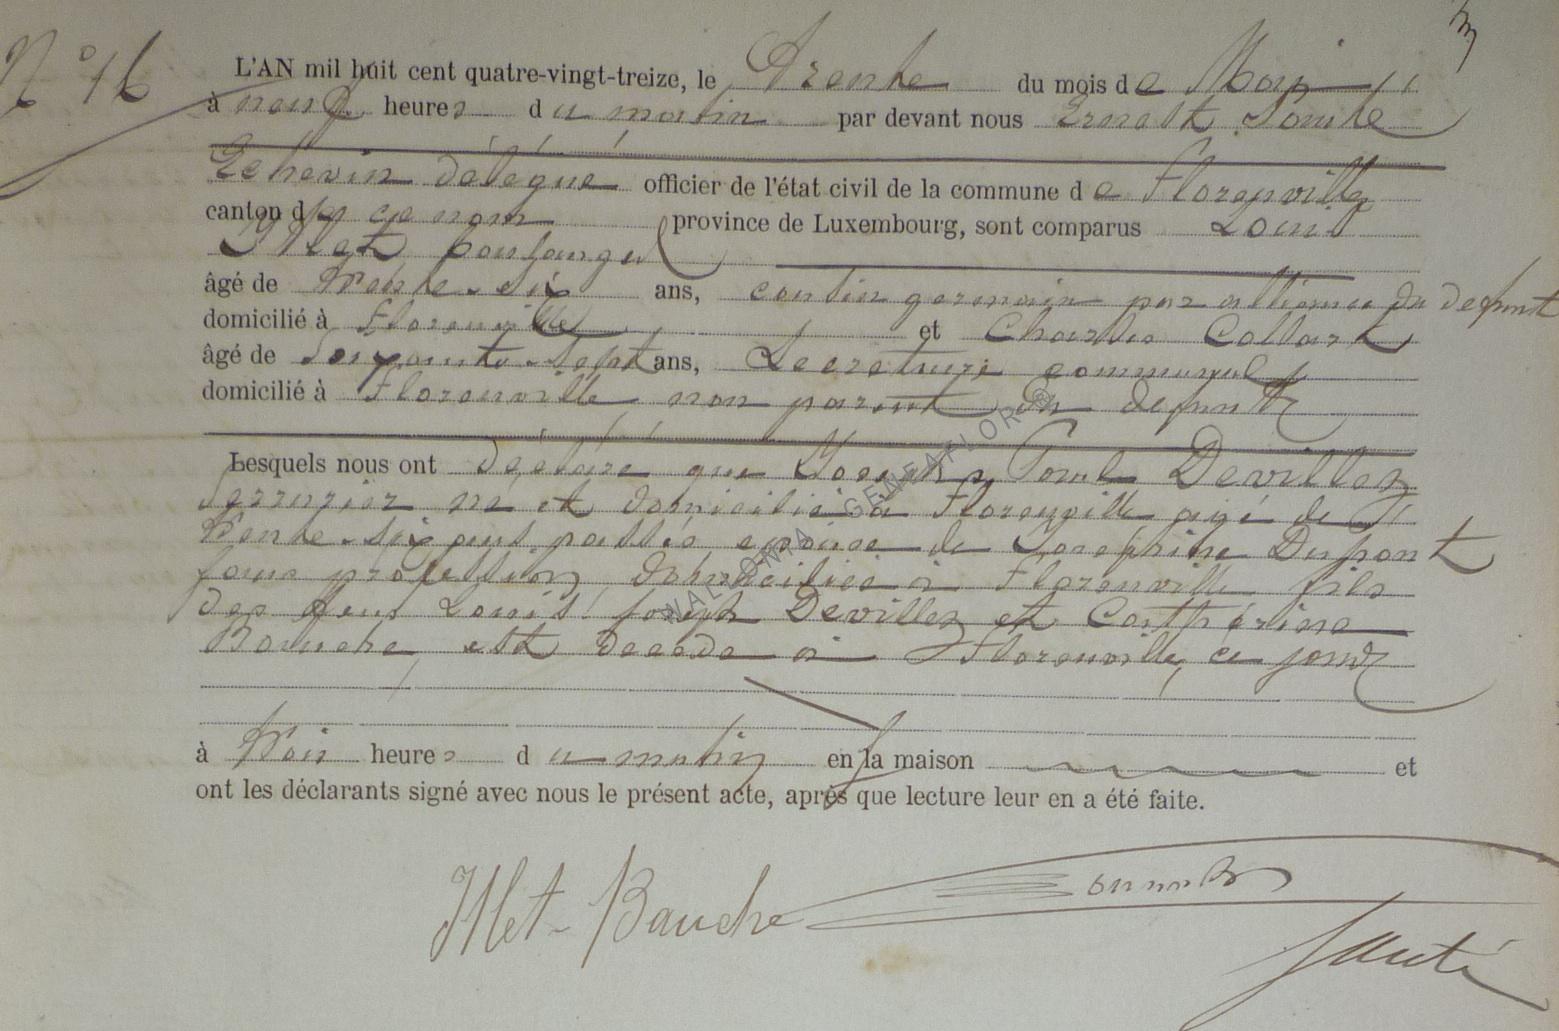 N° 16
L'AN mil huit cent quatre-vingt-treize, le Trente du mois de Mai
à neuf heures du matin par devant nous Ernest Sauté
Echevin délégué officier de l'état civil de la commune de Florenville
canton de ce nom province de Luxembourg, sont comparus Louis
boulanger
âgé de Trente-six ans, cousin germain par alliance du défunt
domicilié à Florenville et Charles Collart
âgé de Soixante-sept ans, Secrétaire communal
domicilié à Florenville, non parent du défunt
Lesquels nous ont déclaré que Joseph Paul Devillez
Serrurier né et domicilié à Florenville agé de
trente-six ans passés, époux de Joséphine Dupont
sans profession, domiciliée à Florenville fils
des feus Louis Joseph Devillez et Cathérine
Bauche, est décédé à Florenville, ce jour
à trois heures du matin en la maison et
ont les déclarants signé avec nous le présent acte, après que lecture leur en a été faite.
Bauche
Sauté
WALLONIA GENEAFLOR ©